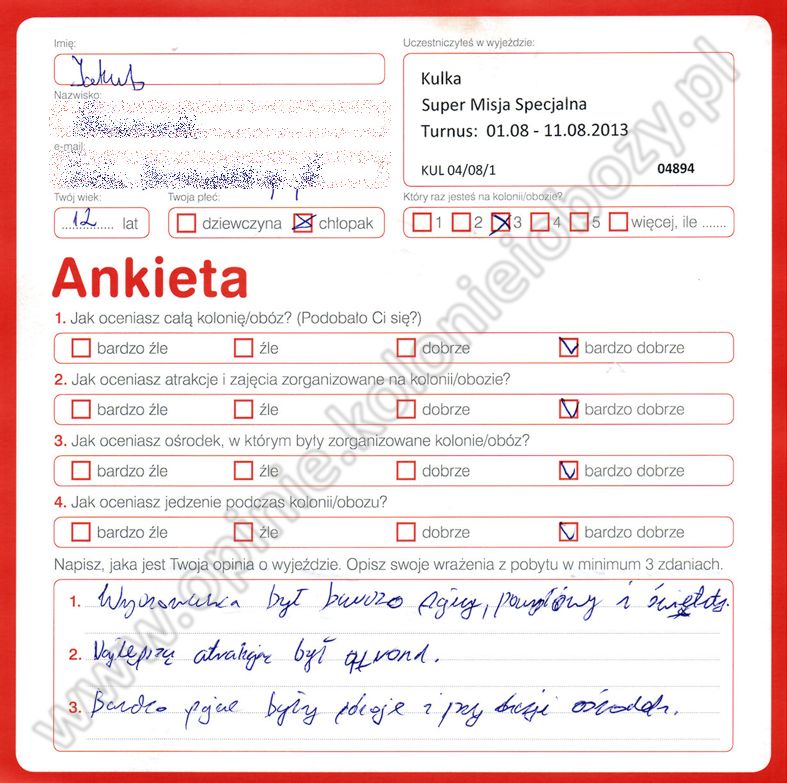 Imię:
Jakub
Uczestniczyłeś w wyjeździe:
Kulka
Super Misja Specjalna
Turnus: 01.08 - 11.08.2013
KUL 04/08/1 04894
Nazwisko:
e-mail:
Twój wiek:
12 lat
Twoja płeć:
dziewczyna chłopak
Który raz jesteś na kolonii/obozie?
1 2 3 4 5 więcej, ile .......
Ankieta
1. Jak oceniasz całą kolonię/obóz? (Podobało Ci się?)
bardzo źle źle dobrze bardzo dobrze
2. Jak oceniasz atrakcje i zajęcia zorganizowane na kolonii/obozie?
bardzo źle źle dobrze bardzo dobrze
3. Jak oceniasz ośrodek, w którym były zorganizowane kolonie/obóz?
bardzo źle źle dobrze bardzo dobrze
4. Jak oceniasz jedzenie podczas kolonii/obozu?
bardzo źle źle dobrze bardzo dobrze
Napisz, jaka jest Twoja opinia o wyjeździe. Opisz swoje wrażenia z pobytu w minimum 3 zdaniach.
1. był bardzo fajny, pomysłowy i
2. Najlepszą atrakcją był
3. Bardzo fajne były i
www.opinie.kolonieiobozy.pl